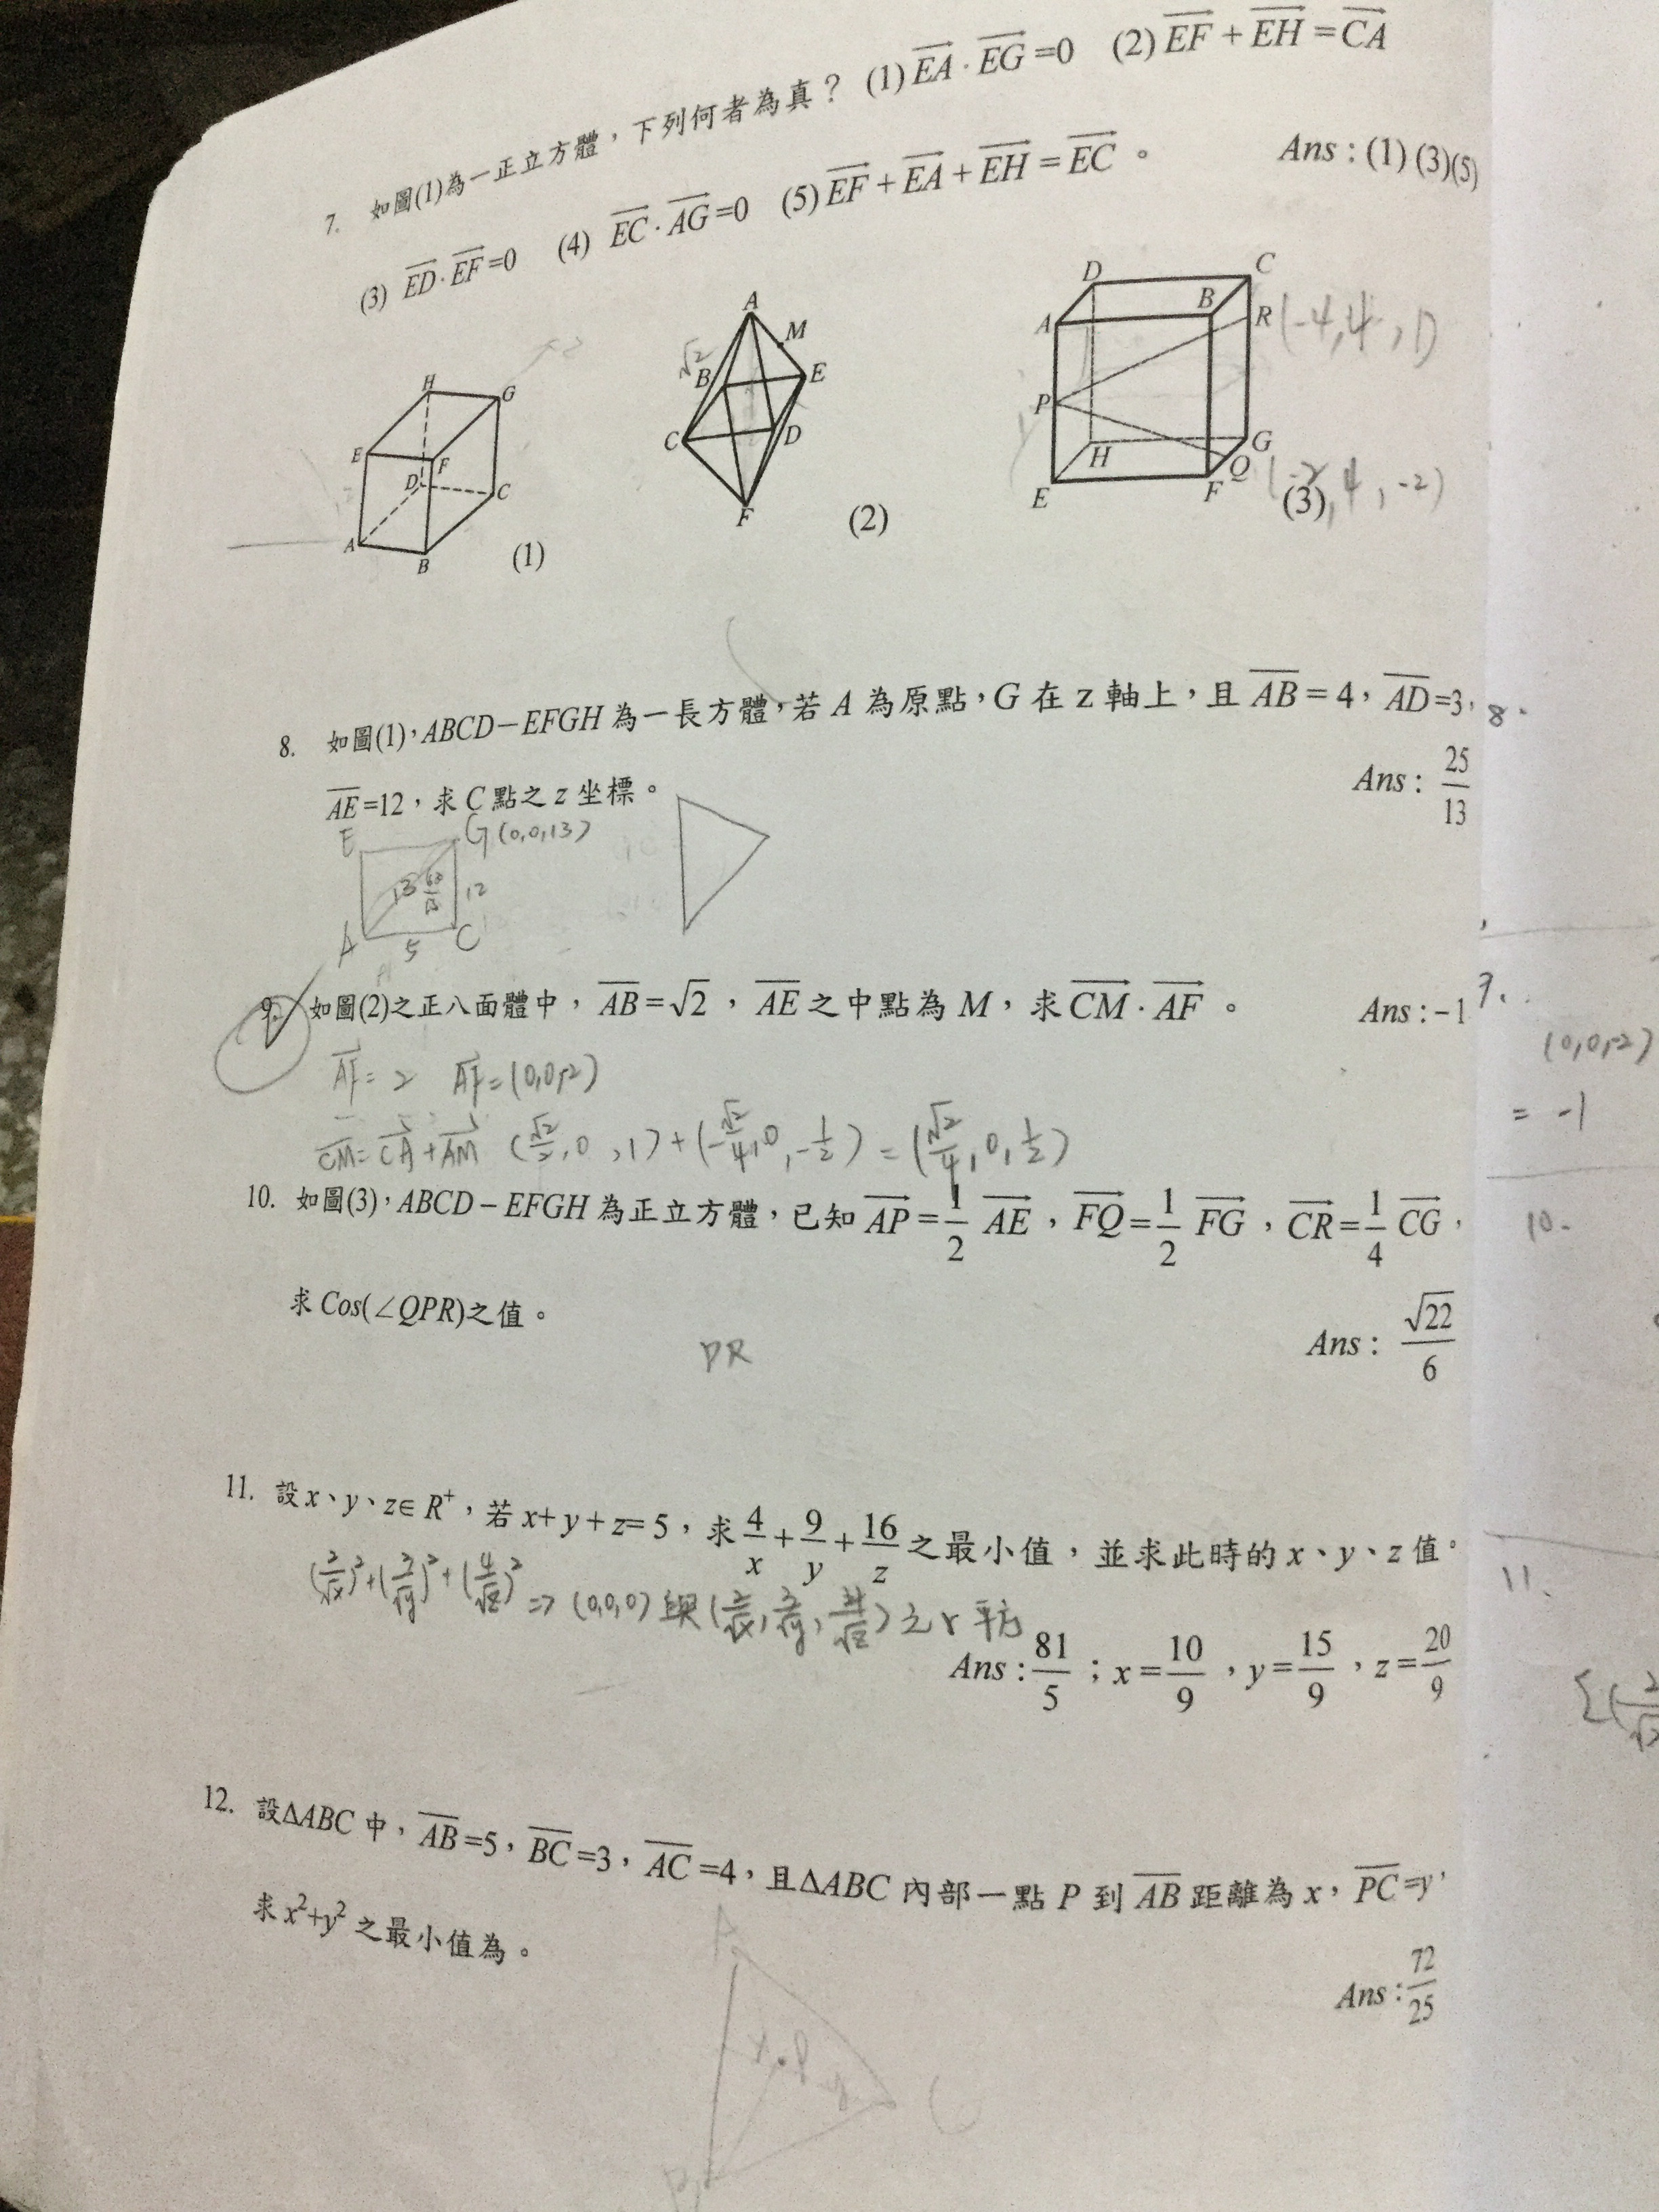 7. 如圖(1)為一正立方體，下列何者為真？ (1) EA · EG =0 (2) EF + EH = CA
(3) ED · EF =0 (4) EC · AG =0 (5) EF + EA + EH = EC 。 Ans：(1) (3)(5)
H G E F D C A B (1)
A M √2 B E C D F (2)
D C A B R (-4,4,1) P H G Q E F (3) (-2,4,-2)
8. 如圖(1)，ABCD－EFGH 為一長方體，若 A 為原點，G 在 z 軸上，且 AB = 4，AD =3， 8.
AE =12，求 C 點之 z 坐標。 Ans： 25/13
E G (0,0,13)
13 60/13 12
A 5 C
9. 如圖(2)之正八面體中，AB = √2，AE 之中點為 M，求 CM · AF 。 Ans：−1 9.
AF = 2 AF = (0,0,-2) (0,0,-2)
CM = CA + AM (√2/2, 0, 1) + (-√2/4, 0, -1/2) = (√2/4, 0, 1/2) = -1
10. 如圖(3)，ABCD－EFGH 為正立方體，已知 AP = 1/2 AE，FQ = 1/2 FG，CR = 1/4 CG， 10.
求 Cos(∠QPR)之值。 Ans： √22/6
PR
11. 設 x、y、z∈ R⁺，若 x+ y + z= 5，求 4/x + 9/y + 16/z 之最小值，並求此時的 x、y、z 值。 11.
(2/√x)² + (3/√y)² + (4/√z)² => (0,0,0) 與 (2/√x, 3/√y, 4/√z) 之 r 平方
Ans：81/5；x = 10/9，y = 15/9，z = 20/9
12. 設ΔABC 中，AB =5，BC =3，AC =4，且ΔABC 內部一點 P 到 AB 距離為 x，PC =y，
求 x²+y² 之最小值為。 Ans：72/25
A
x P y
B C